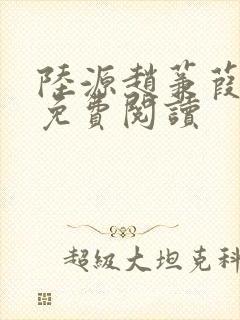 陸源趙蒹葭
免費閱讀
超級大坦克科